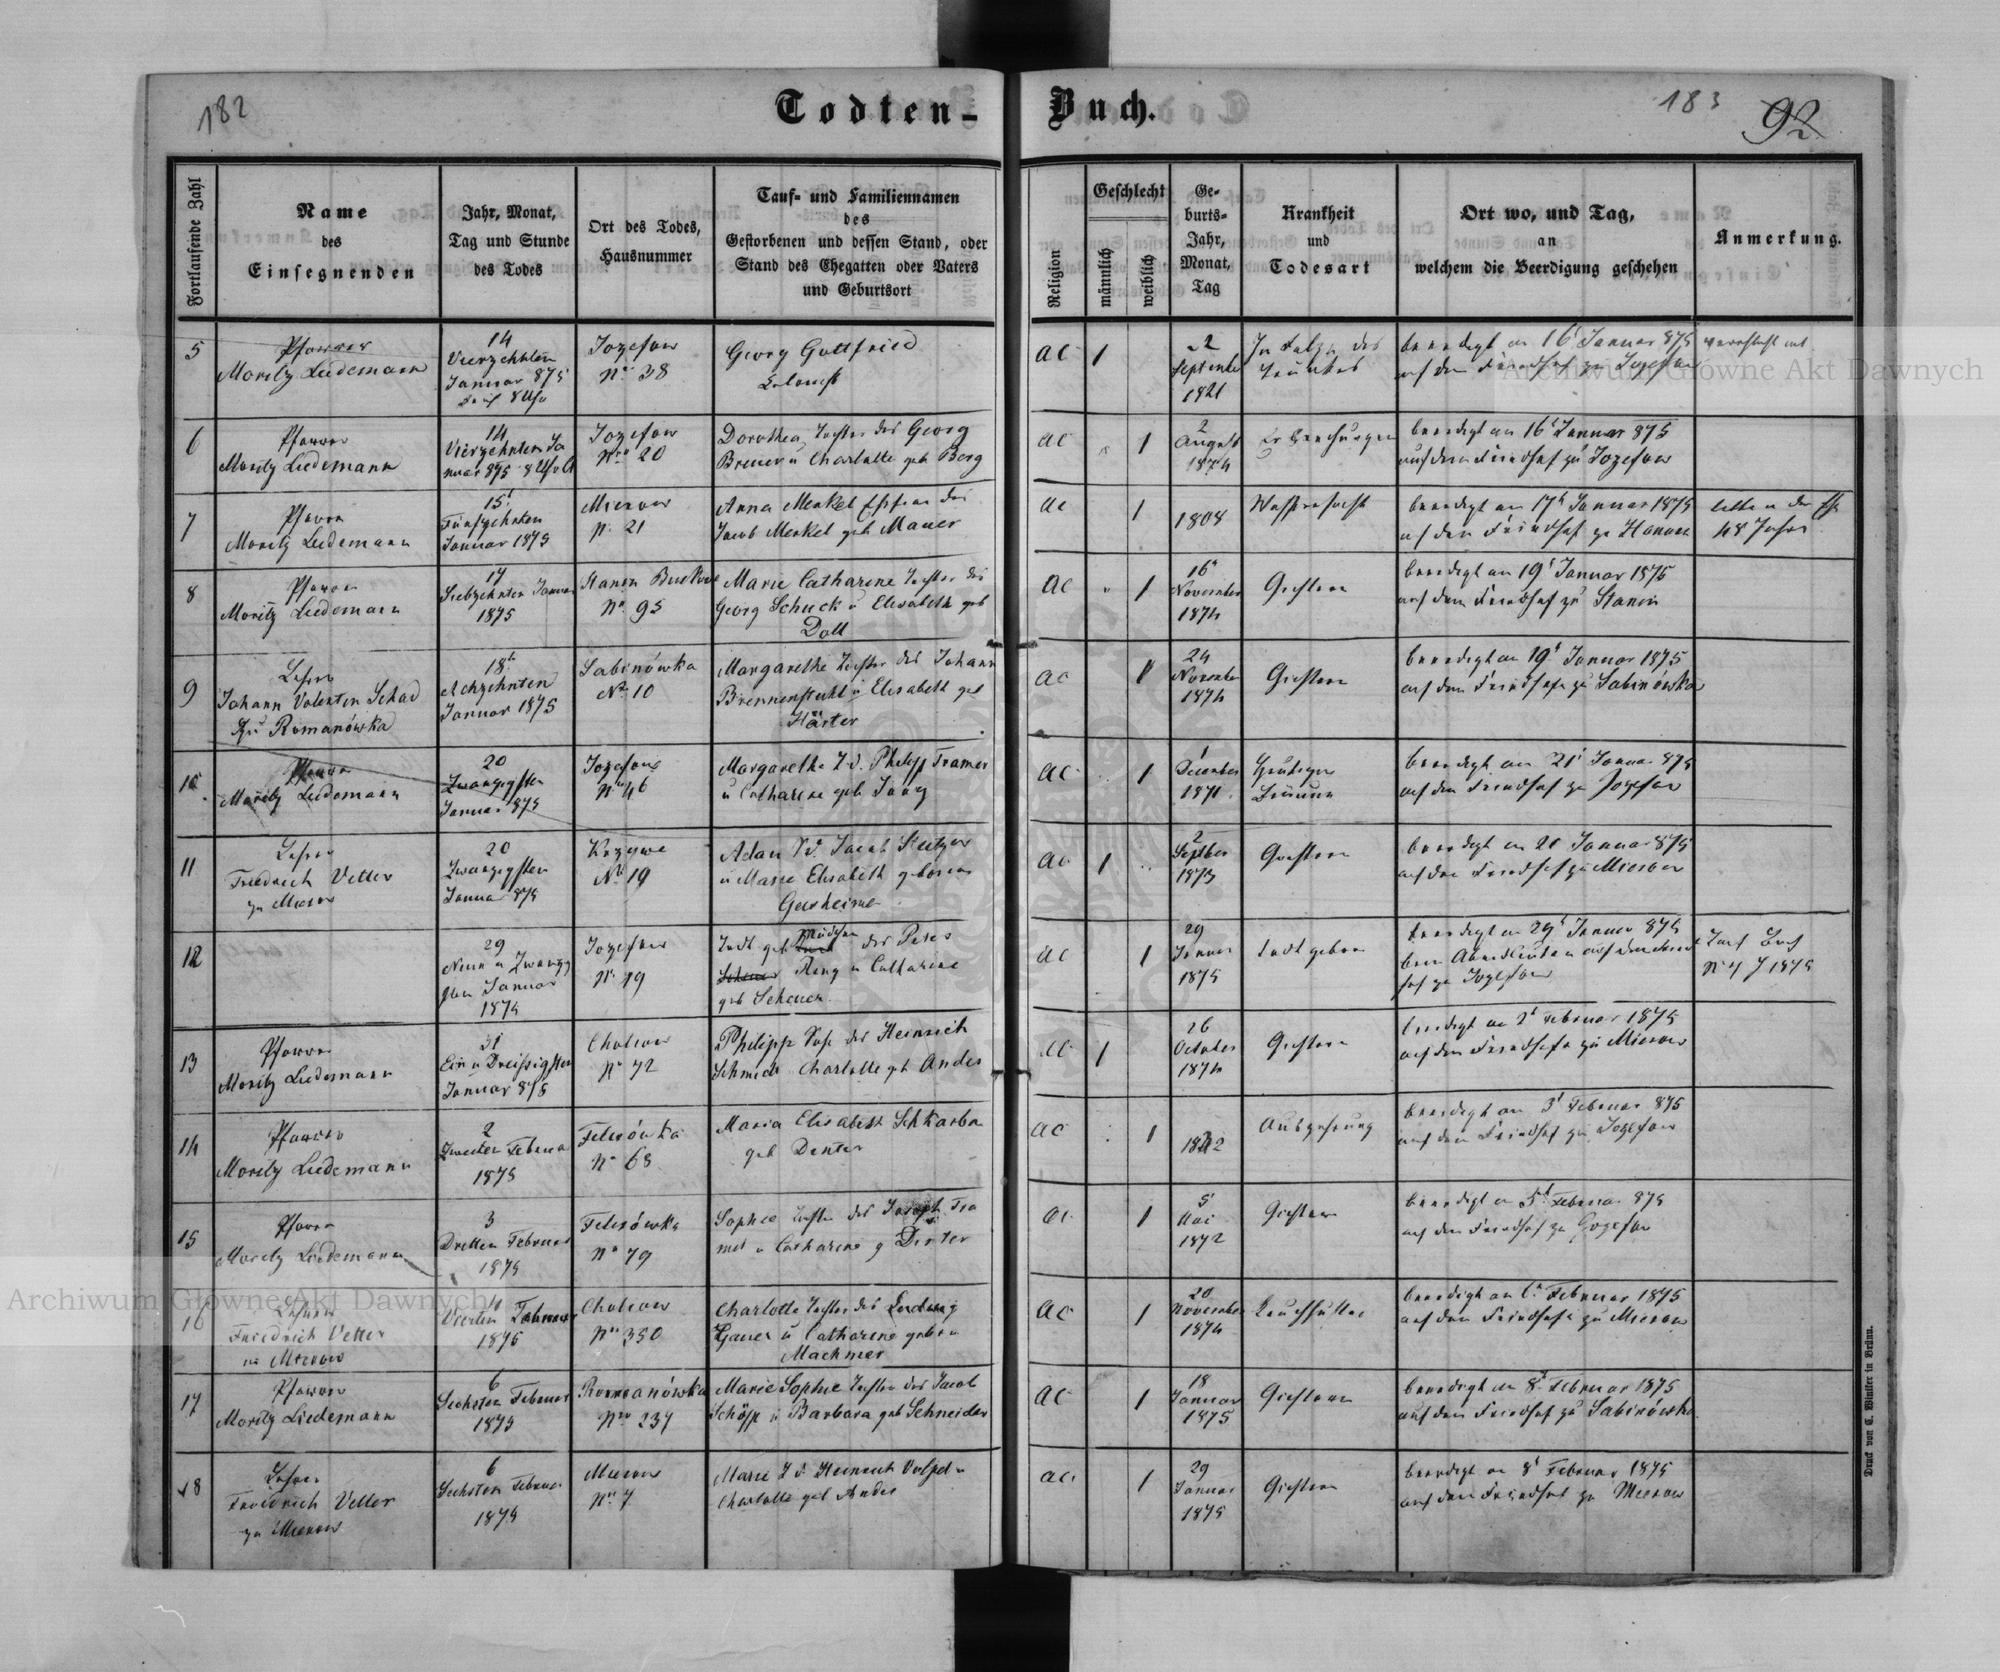 182
Todten-
Buch.
183
92
Fortlaufende Zahl
Name
des
Einsegnenden
Jahr, Monat,
Tag und Stunde
des Todes
Ort des Todes,
Hausnummer
Tauf- und Familiennamen
des
Gestorbenen und dessen Stand, oder
Stand des Ehegatten oder Vaters
und Geburtsort
Religion
Geschlecht
männlich
weiblich
Ge-
burts-
Jahr,
Monat,
Tag
Krankheit
und
Todesart
Ort wo, und Tag,
an
welchem die Beerdigung geschehen
Anmerkung.
5
Pfarrer
Moritz Liedemann
14
Vierzehnten
Januar 875
8 Uhr
Jozefow
No 38
Georg Gottfried
AC
1
2
September
1821
beerdigt am 16t Januar 875
auf dem Friedhof zu Jozefow
6
Pfarrer
Moritz Liedemann
14
Vierzehnten Ja
nuar 875 8 Uhr
Jozefow
Nro 20
Dorothea Tochter des Georg
Breuer u Charlotte geb Berg
AC
1
2
August
1874
beerdigt am 16t Januar 875
auf dem Friedhof zu Jozefow
7
Pfarrer
Moritz Liedemann
15t
Fünfzehnten
Januar 1875
Mierow
N. 21
Anna Merkel Ehefrau des
Jacob Merkel geb Mauer
AC
1
1808
Wassersucht
beerdigt am 17t Januar 1875
auf dem Friedhof zu Hanunin
lebte in der Ehe
48 Jahre
8
Pfarrer
Moritz Liedemann
17
Siebzehnten Januar
1875
Stanin
No 95
Marie Catharine Tochter des
Georg Schuck u Elisabeth geb
Doll
AC
1
16t
November
1874
Gichtern
beerdigt am 19t Januar 1875
auf dem Friedhof zu Stanin
9
Lehrer
Johann Valentin Schad
zu Romanówka
18t
Achzehnten
Januar 1875
Sabinówka
No 10
Margarethe Tochter des Johann
Brennenstuhl u Elisabeth geb
Härter
AC
1
24
November
1874
Gichtern
beerdigt am 19t Januar 1875
auf dem Friedhofe zu Sabinówka
10
Pfarrer
Moritz Liedemann
20
Zwanzigsten
Januar 875
Jozefow
No 46
Margarethe T. d. Philipp Tramer
u Catharine geb Jung
AC
1
1
December
1871
beerdigt am 21t Januar 875
auf dem Friedhof zu Jozefow
11
Lehrer
Friedrich Vetter
zu Mierow
20
Zwanzigsten
Januar 875
Krzywe
No 19
Adam S. d. Jacob
u Marie Elisabeth geborene
AC
1
2
September
1873
Gichtern
beerdigt am 21 Januar 875
auf dem Friedhof zu Mierow
12
29
Neun u Zwanzig
sten Januar
1875
Jozefow
No 19
Todt geb Mädchen des Peter
Ring u Catharine
geb Scheuer
AC
1
29
Januar
1875
todt geboren
beerdigt am 29t Januar 875
zu Jozefow
13
Pfarrer
Moritz Liedemann
31
Ein u Dreißigsten
Januar 875
Cholojow
No 72
Philipp Sohn des Heinrich
Schmidt Charlotte geb Andes
AC
1
26
October
1874
Gichtern
beerdigt am 2t Februar 1875
auf dem Friedhofe zu Mierow
14
Pfarrer
Moritz Liedemann
2
Zweiten Februar
1875
Felixówka
No 68
Maria Elisabeth
geb Denter
AC
1
Auszehrung
beerdigt am 3t Februar 875
auf dem Friedhof zu Jozefow
15
Pfarrer
Moritz Liedemann
3
Dritten Februar
1875
Felixówka
No 79
Sophie Tochter des Joseph Tra
mer u Catharine g Denter
AC
1
5t
Mai
1872
Gichtern
beerdigt am 5t Februar 875
auf dem Friedhof zu Jozefow
16
Lehrer
Friedrich Vetter
in Mierow
4
Vierten Februar
1875
Cholojow
No 350
Charlotte Tochter des Ludwig
Gauer u Catharine geborne
Machmer
AC
1
20
November
1874
beerdigt am 6. Februar 1875
auf dem Friedhofe zu Mierow
17
Pfarrer
Moritz Liedemann
6
Sechsten Februar
1875
Romanówka
Nro 237
Marie Sophie Tochter des Jacob
Schöff u Barbara geb Schneider
AC
1
18
Januar
1875
Gichtern
beerdigt am 8t Februar 1875
auf dem Friedhof zu Sabinówka
18
Lehrer
Friedrich Vetter
zu Mierow
6
Sechsten Februar
1875
Mierow
No 7
Marie T d Heinrich
Charlotte geb Andes
AC
1
29
Januar
1875
Gichtern
beerdigt am 8t Februar 1875
auf dem Friedhof zu Mierow
Druck von C. Winiker in Brünn.
Archiwum Główne Akt Dawnych
Archiwum Główne Akt Dawnych